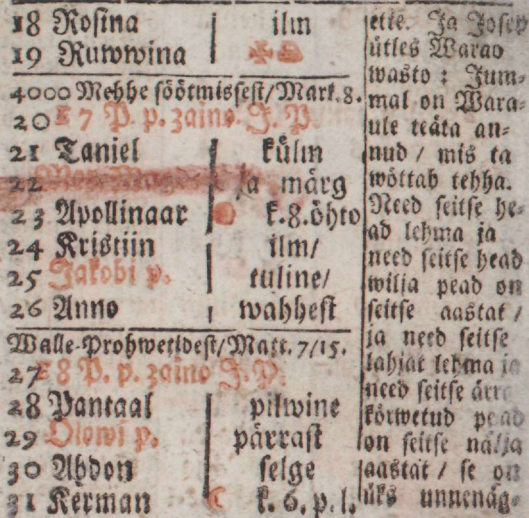 18 Rosina ilm
19 Ruwwina
4000 Mehhe söötmissest/Mark. 8.
20 E 7 P. p. zaino J. P.
21 Taniel külm
22 ja märg
23 Apollinaar k. 8. öhto
24 Kristiin ilm/
25 Jakobi p. tuline/
26 Anno wahhest
Walle-Prohwetidest/Matt. 7/15.
27 E 8 P. p. zaino J. P.
28 Pantaal pilwine
29 Olewi p. pärrast
30 Abdon selge
31 Kerman k. 6. p. l.
jelle. Ja Josep
ütles Warao
wasto : Jum-
mal on Wara-
ule teäta an-
nud / mis ta
wöttab tehha.
Need seitse he-
ad lehma ja
need seitse head
wilja pead on
seitse aastat /
ja need seitse
lahjat lehma ja
need seitse ärra
körwetud pead
on seitse nälja
aastat / se on
üks unnenäg-